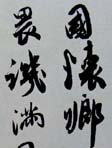 國懷鄉
畏譏滿